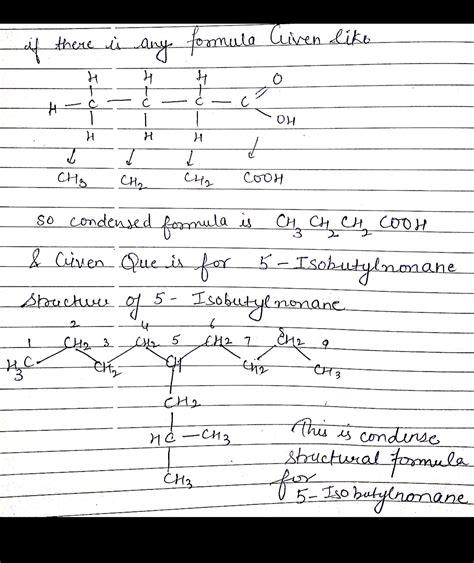 if there is any formula Given like
H H H O
H — C — C — C — C
OH
H H H
CH3 CH2 CH2 COOH
so condensed formula is CH3 CH2 CH2 COOH
& Given Que is for 5-Isobutylnonane
Structure of 5-Isobutylnonane
1 2 3 4 5 6 7 8 9
H3C CH2 CH2 CH2 CH CH2 CH2 CH2 CH3
CH2
HC — CH3
CH3
This is condense
structural formula
for
5-Isobutylnonane